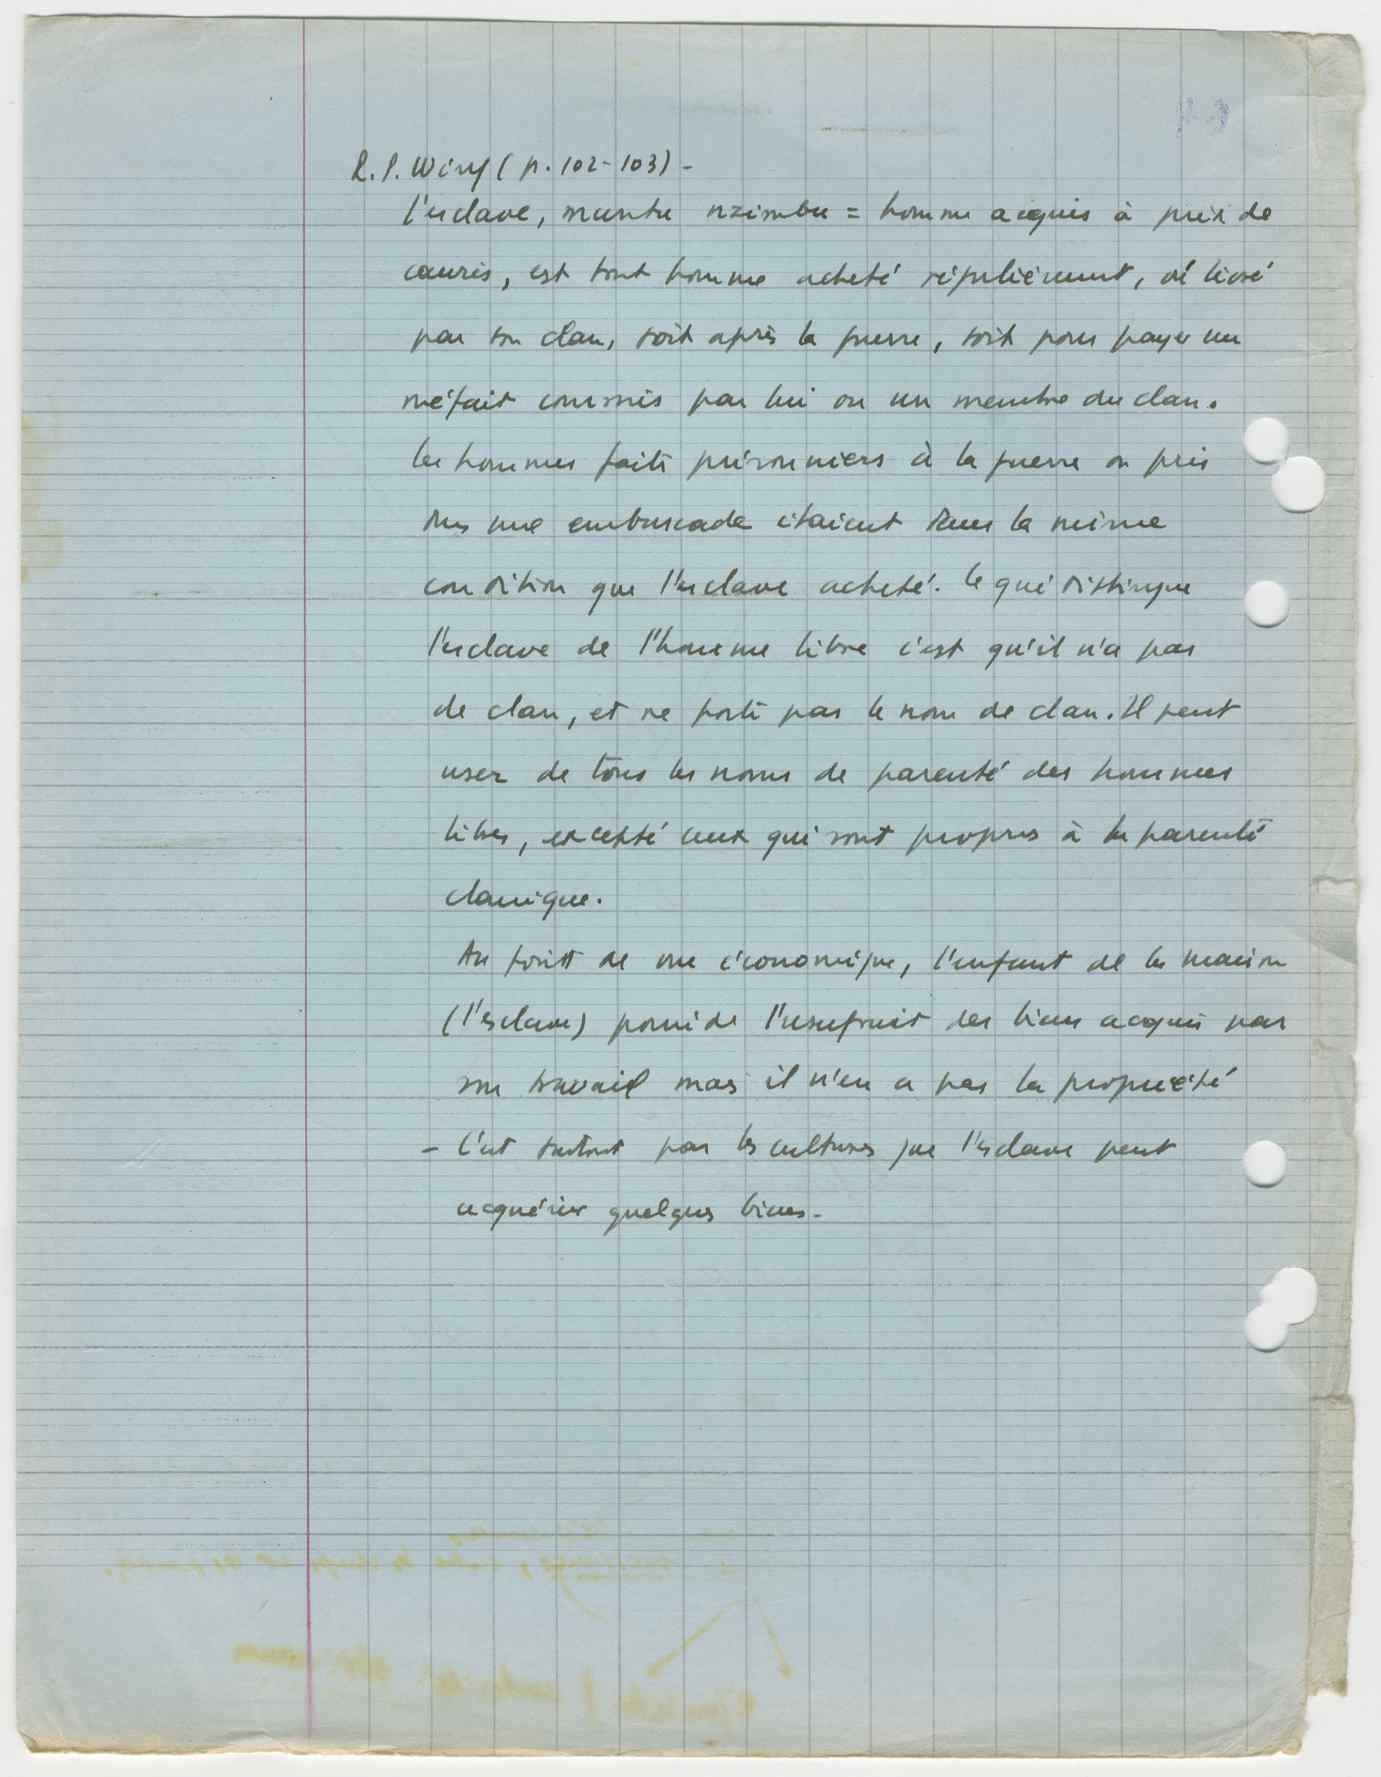 R.P. Wing (p. 102-103) -
l'esclave, muntu nzimbu = homme acquis à prix de
cauris, est tout homme acheté régulièrement, et livré
par son clan, soit après la guerre, soit pour payer un
méfait commis par lui ou un membre du clan.
les hommes faits prisonniers à la guerre ou pris
dans une embuscade étaient dans la même
condition que l'esclave acheté. Ce qui distingue
l'esclave de l'homme libre c'est qu'il n'a pas
de clan, et ne porte pas le nom de clan. Il peut
user de tous les noms de parenté des hommes
libres, excepté ceux qui sont propres à la parenté
clanique.
Au point de vue économique, l'enfant de la maison
(l'esclave) possède l'usufruit des biens acquis par
son travail mais il n'en a pas la propriété
- C'est surtout par les cultures que l'esclave peut
acquérir quelques biens -